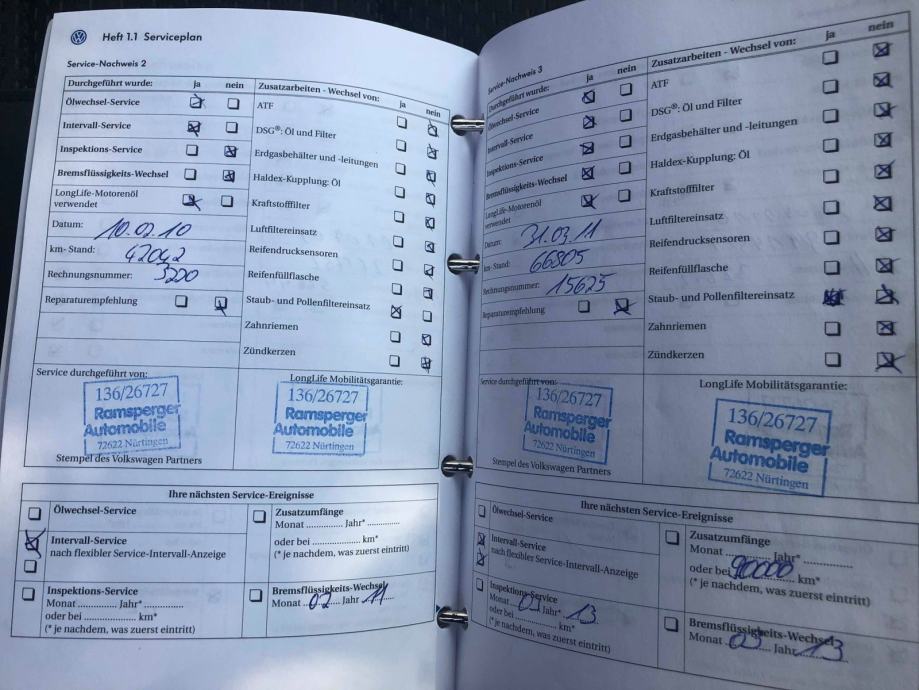 Heft 1.1 Serviceplan
Service-Nachweis 2
Durchgeführt wurde: ja nein
Ölwechsel-Service
Intervall-Service
Inspektions-Service
Bremsflüssigkeits-Wechsel
LongLife-Motorenöl
verwendet
Datum: 10.02.10
km-Stand: 42042
Rechnungsnummer: 3200
Reparaturempfehlung
Zusatzarbeiten - Wechsel von: ja nein
ATF
DSG®: Öl und Filter
Erdgasbehälter und -leitungen
Haldex-Kupplung: Öl
Kraftstofffilter
Luftfiltereinsatz
Reifendrucksensoren
Reifenfüllflasche
Staub- und Pollenfiltereinsatz
Zahnriemen
Zündkerzen
Service durchgeführt von:
136/26727
Ramsperger
Automobile
72622 Nürtingen
Stempel des Volkswagen Partners
LongLife Mobilitätsgarantie:
136/26727
Ramsperger
Automobile
72622 Nürtingen
Ihre nächsten Service-Ereignisse
Ölwechsel-Service
Intervall-Service
nach flexibler Service-Intervall-Anzeige
Inspektions-Service
Monat ............ Jahr* ............
oder bei ............ km*
(* je nachdem, was zuerst eintritt)
Zusatzumfänge
Monat ............ Jahr* ............
oder bei ............ km*
(* je nachdem, was zuerst eintritt)
Bremsflüssigkeits-Wechsel
Monat 02 Jahr 11
Service-Nachweis 3
Durchgeführt wurde: ja nein
Ölwechsel-Service
Intervall-Service
Inspektions-Service
Bremsflüssigkeits-Wechsel
LongLife-Motorenöl
verwendet
Datum: 31.03.11
km-Stand: 66805
Rechnungsnummer: 15625
Reparaturempfehlung
Zusatzarbeiten - Wechsel von: ja nein
ATF
DSG®: Öl und Filter
Erdgasbehälter und -leitungen
Haldex-Kupplung: Öl
Kraftstofffilter
Luftfiltereinsatz
Reifendrucksensoren
Reifenfüllflasche
Staub- und Pollenfiltereinsatz
Zahnriemen
Zündkerzen
Service durchgeführt von:
136/26727
Ramsperger
Automobile
72622 Nürtingen
Stempel des Volkswagen Partners
LongLife Mobilitätsgarantie:
136/26727
Ramsperger
Automobile
72622 Nürtingen
Ihre nächsten Service-Ereignisse
Ölwechsel-Service
Intervall-Service
nach flexibler Service-Intervall-Anzeige
Inspektions-Service
Monat 03 Jahr* 13
oder bei ............ km*
(* je nachdem, was zuerst eintritt)
Zusatzumfänge
Monat ............ Jahr* ............
oder bei 90000 km*
(* je nachdem, was zuerst eintritt)
Bremsflüssigkeits-Wechsel
Monat 03 Jahr 13